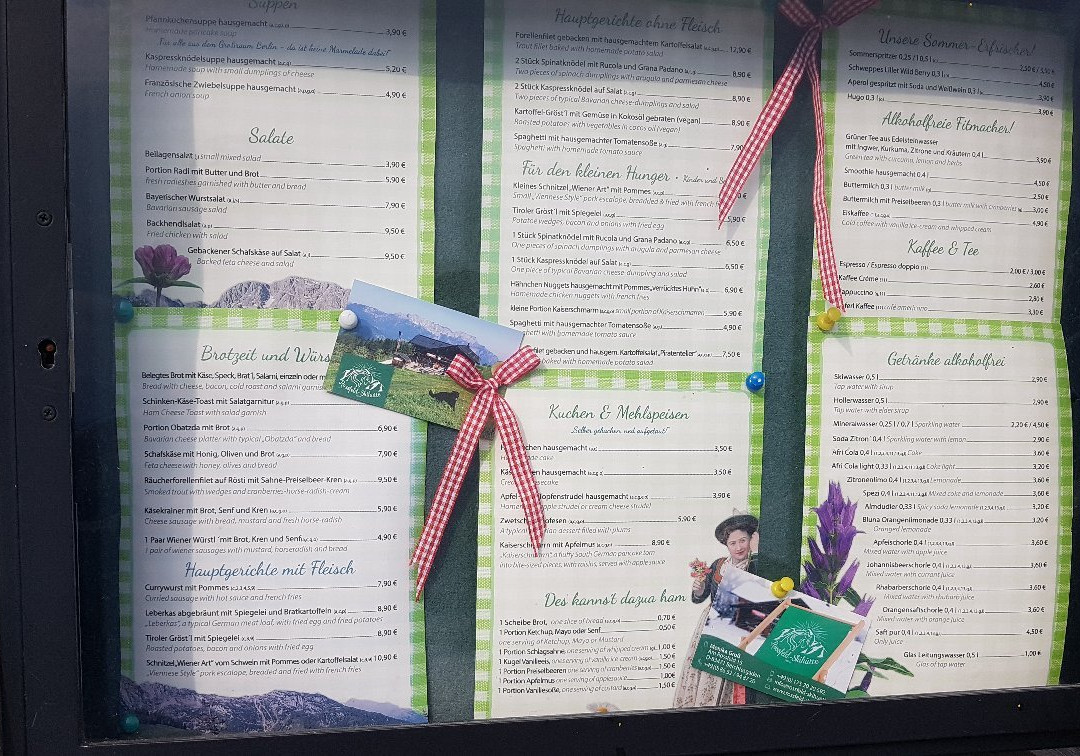 Suppen
Pfannkuchensuppe hausgemacht 3,90 €
Homemade pancake soup
Für alle aus dem Großraum Berlin - da ist keine Marmelade dabei!
Kaspressknödelsuppe hausgemacht 5,20 €
Homemade soup with small dumplings of cheese
Französische Zwiebelsuppe hausgemacht 4,90 €
French onion soup
Salate
Beilagensalat small mixed salad 3,90 €
Portion Radi mit Butter und Brot 5,90 €
fresh radieshes garnished with butter and bread
Bayerischer Wurstsalat 7,90 €
Bavarian sausage salad
Backhendlsalat 9,50 €
Fried chicken with salad
Gebackener Schafskäse auf Salat 9,50 €
Backed feta cheese and salad
Brotzeit und Würs
Belegtes Brot mit Käse, Speck, Brat´l, Salami, einzeln oder m
Bread with cheese, bacon, cold roast and salami garnis
Schinken-Käse-Toast mit Salatgarnitur
Ham Cheese Toast with salad garnish
Portion Obatzda mit Brot 6,90 €
Bavarian cheese platter with typical „Obatzda" and bread
Schafskäse mit Honig, Oliven und Brot 7,90 €
Feta cheese with honey, olives and bread
Räucherforellenfilet auf Rösti mit Sahne-Preiselbeer-Kren 9,50 €
Smoked trout with wedges and cranberries-horse-radish-cream
Käsekrainer mit Brot, Senf und Kren 5,90 €
Cheese sausage with bread, mustard and fresh horse-radish
1 Paar Wiener Würstl´mit Brot, Kren und Senf 4,90 €
1 pair of wiener sausages with mustard, horseradish and bread
Hauptgerichte mit Fleisch
Currywurst mit Pommes 7,90 €
Curried sausage with hot sauce and french fries
Leberkas abgebräunt mit Spiegelei und Bratkartoffeln 8,90 €
„Leberkas", a typical German meat loaf, with fried egg and fried potatoes
Tiroler Gröst´l mit Spiegelei 8,90 €
Roasted potatoes, bacon and onions with fried egg
Schnitzel „Wiener Art" vom Schwein mit Pommes oder Kartoffelsalat 10,90 €
„Viennese Style" pork escalope, breaded and fried with french fries
Hauptgerichte ohne Fleisch
Forellenfilet gebacken mit hausgemachtem Kartoffelsalat 12,90 €
Trout fillet baked with homemade potato salad
2 Stück Spinatknödl mit Rucola und Grana Padano 8,90 €
Two pieces of spinach dumplings with arugula and parmesan cheese
2 Stück Kaspressknödl auf Salat 8,90 €
Two pieces of typical Bavarian cheese-dumplings and salad
Kartoffel-Gröst´l mit Gemüse in Kokosöl gebraten (vegan) 8,90 €
Roasted potatoes with vegetables in cocos oil (vegan)
Spaghetti mit hausgemachter Tomatensoße 7,90
Spaghetti with homemade tomato sauce
Für den kleinen Hunger - Kinder und Se
Kleines Schnitzel „Wiener Art" mit Pommes
Small „Viennese Style" pork escalope, breadded & fried with french f
Tiroler Gröst´l mit Spiegelei 5,90 €
Potatoe wedges, bacon and onions with fried egg
1 Stück Spinatknödl mit Rucola und Grana Padano 6,50 €
One pieces of spinach dumplings with arugula and parmesan cheese
1 Stück Kaspressknödl auf Salat 6,50 €
One piece of typical Bavarian cheese-dumpling and salad
Hähnchen Nuggets hausgemacht mit Pommes „verrücktes Huhn" 6,90 €
Homemade chicken nuggets with french fries
kleine Portion Kaiserschmarrn small portion of Kaiserschmarren 5,90 €
Spaghetti mit hausgemachter Tomatensoße 4,90 €
hetti with homemade tomato sauce
filet gebacken und hausgem. Kartoffelsalat „Piratenteller" 7,50 €
baked with homemade potato salad
Kuchen & Mehlspeisen
„Selber gebacken und aufgetan!"
chen hausgemacht 3,50 €
cake
Käs en hausgemacht 3,50 €
Crea esecake
Apfel pfenstrudel hausgemacht 3,90 €
Homemade (apple strudel or cream cheese strudel)
Zwetsch ofesen 5,90 €
A typica dessert filled with plums
Kaisersch n mit Apfelmus 8,90 €
„Kaisersch a fluffy South German pancake torn
into bite-sized pieces, with raisins, serves with apple sauce
Des kannst dazua ham
1 Scheibe Brot, one slice of bread 0,70 €
1 Portion Ketchup, Mayo oder Senf 0,50 €
one serving of Ketchup, Mayo or Mustard
1 Portion Schlagsahne one serving of whipped cream 1,00 €
1 Kugel Vanilleeis, one serving of vanilla ice cream 1,50 €
1 Portion Preiselbeeren one serving of cranberries 1,50 €
1 Portion Apfelmus one serving of applesauce 1,00€
1 Portion Vanillesoße, one serving of custard 1,50 €
Unsere Sommer-Erfrischer!
Sommerspritzer 0,25 l / 0,5 l 2,50 € / 3,50 €
Schweppes Lillet Wild Berry 0,3 l 4,50 €
Aperol gespritzt mit Soda und Weißwein 0,3 l 3,90 €
Hugo 0,3 l 3,90 €
Alkoholfreie Fitmacher!
Grüner Tee aus Edelsteinwasser
mit Ingwer, Kurkuma, Zitrone und Kräutern 0,4 l 3,90 €
Green tea with curcuma, lemon and herbs
Smoothie hausgemacht 0,4 l 4,50 €
Buttermilch 0,3 l butter milk 2,50 €
Buttermilch mit Preiselbeeren 0,3 l butter milk with cranberries 3,00 €
Eiskaffee 4,90 €
Cold coffee with vanilla ice-cream and whipped cream
Kaffee & Tee
Espresso / Espresso doppio 2,00 € / 3,00 €
Kaffee Crème 2,60 €
appuccino 2,80 €
ferl Kaffee café americano 3,30 €
Getränke alkoholfrei
Skiwasser 0,5 l 2,90 €
Tap water with sirup
Hollerwasser 0,5 l 2,90 €
Tap water with elder sirup
Mineralwasser 0,25 l / 0,7 l Sparkling water 2,20 € / 4,50 €
Soda Zitron´ 0,4 l Sparkling water with lemon 2,90 €
Afri Cola 0,4 l Coke 3,60 €
Afri Cola light 0,33 l Coke light 3,20 €
Zitronenlimo 0,4 l Lemonade 3,60 €
Spezi 0,4 l Mixed coke and lemonade 3,60 €
Almdudler 0,33 l Spicy soda lemonade 3,20 €
Bluna Orangenlimonade 0,33 l 3,20 €
Oranged lemonade
Apfelschorle 0,4 l 3,60 €
Mixed water with apple juice
Johannisbeerschorle 0,4 l 3,60 €
Mixed water with currant juice
Rhabarberschorle 0,4 l 3,60 €
Mixed water with rhubarb juice
Orangensaftschorle 0,4 l 3,60 €
Mixed water with orange juice
Saft pur 0,4 l 4,50 €
Only juice
Glas Leitungswasser 0,5 l 1,00 €
Glas of tap water
Rossfeld-Skihütte
Rossfeld-Skihütte